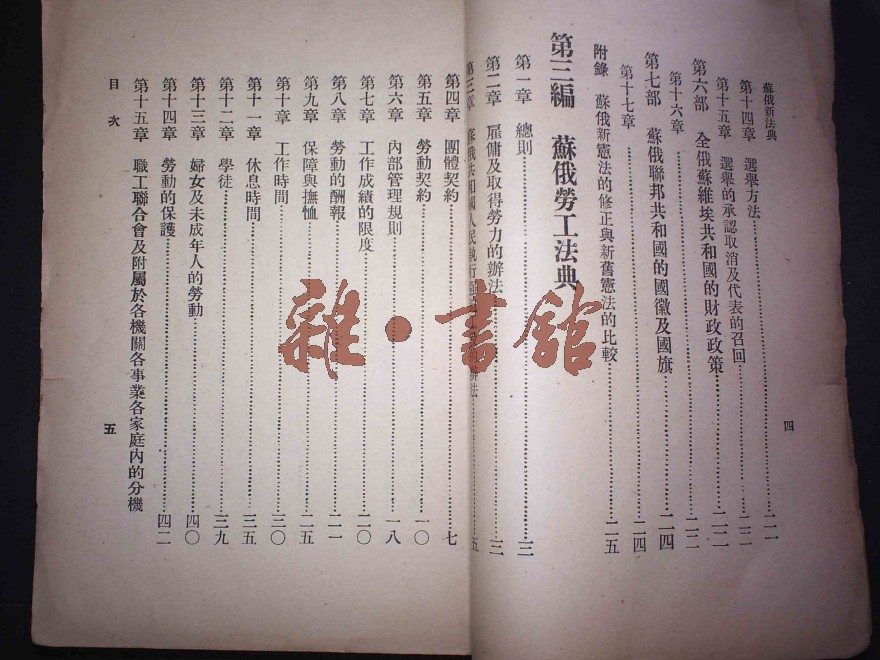 蘇俄新法典
第十四章 選舉方法……二一
第十五章 選舉的承認取消及代表的召回……二二
第六部 全俄蘇維埃共和國的財政政策……二二
第十六章……二二
第七部 蘇俄聯邦共和國的國徽及國旗……二四
第十七章……二四
附錄 蘇俄新憲法的修正與新舊憲法的比較……二五
四
第三編 蘇俄勞工法典
第一章 總則……三
第二章 雇傭及取得勞力的辦法……三
第三章 蘇俄共和國人民執行 辦法……五
第四章 團體契約……七
第五章 勞動契約……一〇
第六章 內部管理規則……一八
第七章 工作成績的限度……二〇
第八章 勞動的酬報……二一
第九章 保障與撫恤……二五
第十章 工作時間……三〇
第十一章 休息時間……三五
第十二章 學徒……三九
第十三章 婦女及未成年人的勞動……四〇
第十四章 勞動的保護……四二
第十五章 職工聯合會及附屬於各機關各事業各家庭內的分機
目次
五
雜·書館